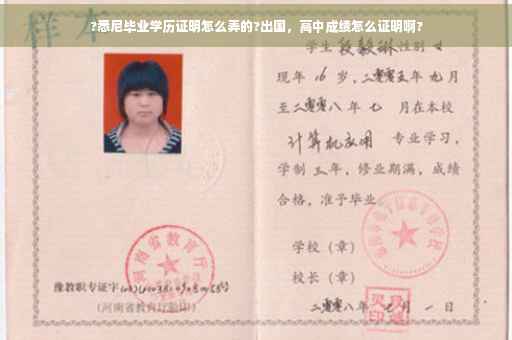 ?悉尼毕业学历证明怎么弄的?出国，高中成绩怎么证明啊?
样本
学生段毅琳性别女
现年16岁,二零零五年九月
至二零零八年七月在本校
计算机应用 专业学习,
学制三年,修业期满,成绩
合格,准予毕业
学校（章）
校长（章）
二零零八年七月一日
河南省教育厅
豫教职专证字
(河南省教育厅验印)